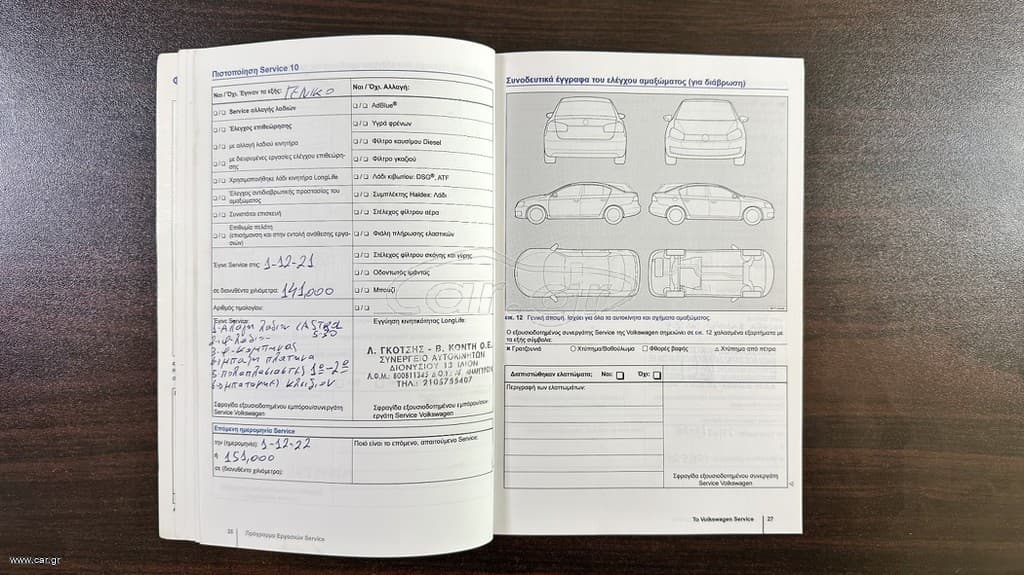 Πιστοποίηση Service 10
Ναι / Όχι. Έγιναν τα εξής: ΓΕΝΙΚΟ
❑/❑ Service αλλαγής λαδιών
❑/❑ Έλεγχος επιθεώρησης
❑/❑ με αλλαγή λαδιού κινητήρα
❑/❑ με διευρυμένες εργασίες ελέγχου επιθεώρη-
σης
❑/❑ Χρησιμοποιήθηκε λάδι κινητήρα LongLife
❑/❑ Έλεγχος αντιδιαβρωτικής προστασίας του
αμαξώματος
❑/❑ Συνιστάται επισκευή
❑/❑ Επιθυμία πελάτη
(επισήμανση και στην εντολή ανάθεσης εργα-
σιών)
Έγινε Service στις: 1-12-21
σε διανυθέντα χιλιόμετρα: 141,000
Αριθμός τιμολογίου:
Έγινε Service:
Σφραγίδα εξουσιοδοτημένου εμπόρου/συνεργάτη
Service Volkswagen
Ναι / Όχι. Αλλαγή:
❑/❑ AdBlue®
❑/❑ Υγρά φρένων
❑/❑ Φίλτρο καυσίμου Diesel
❑/❑ Φίλτρο γκαζιού
❑/❑ Λάδι κιβωτίου: DSG®, ATF
❑/❑ Συμπλέκτης Haldex: Λάδι
❑/❑ Στέλεχος φίλτρου αέρα
❑/❑ Φιάλη πλήρωσης ελαστικών
❑/❑ Στέλεχος φίλτρου σκόνης και γύρης
❑/❑ Οδοντωτός ιμάντας
❑/❑ Μπουζί
❑/❑
Εγγύηση κινητικότητας LongLife:
Λ. ΓΚΟΤΖΗΣ - Β. ΚΟΝΤΗ Ο.Ε.
ΣΥΝΕΡΓΕΙΟ ΑΥΤΟΚΙΝΗΤΩΝ
ΔΙΟΝΥΣΙΟΥ 13 ΙΛΙΟΝ
ΤΗΛ: 2105755407
Σφραγίδα εξουσιοδοτημένου εμπόρου/συν-
εργάτη Service Volkswagen
Επόμενη ημερομηνία Service
την (ημερομηνία): 1-12-22
ή 151,000
σε (διανυθέντα χιλιόμετρα):
Ποιό είναι το επόμενο, απαιτούμενο Service:
26 Πρόγραμμα Εργασιών Service
Συνοδευτικά έγγραφα του ελέγχου αμαξώματος (για διάβρωση)
εικ. 12 Γενική άποψη. Ισχύει για όλα τα αυτοκίνητα και οχήματα αμαξώματος.
Ο εξουσιοδοτημένος συνεργάτης Service της Volkswagen σημειώνει σε εικ. 12 χαλασμένα εξαρτήματα με
τα εξής σύμβολα:
× Γρατζουνιά ○ Χτύπημα/Βαθούλωμα ❑ Φθορές βαφής △ Χτύπημα από πέτρα
Διαπιστώθηκαν ελαττώματα: Ναι: ❑ Όχι: ❑
Περιγραφή των ελαττωμάτων:
Σφραγίδα εξουσιοδοτημένου συνεργάτη
Service Volkswagen
Το Volkswagen Service 27
www.car.gr